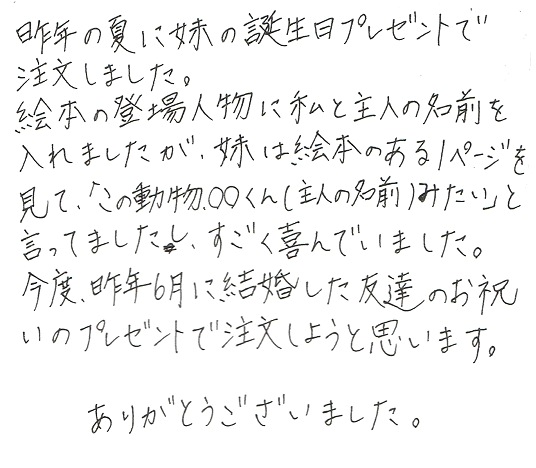 昨年の夏に妹の誕生日プレゼントで
注文しました。
絵本の登場人物に私と主人の名前を
入れましたが、妹は絵本のある1ページを
見て、「この動物、〇〇くん(主人の名前)みたい」と
言ってましたし、すごく喜んでいました。
今度、昨年6月に結婚した友達のお祝
いのプレゼントで注文しようと思います。
ありがとうございました。